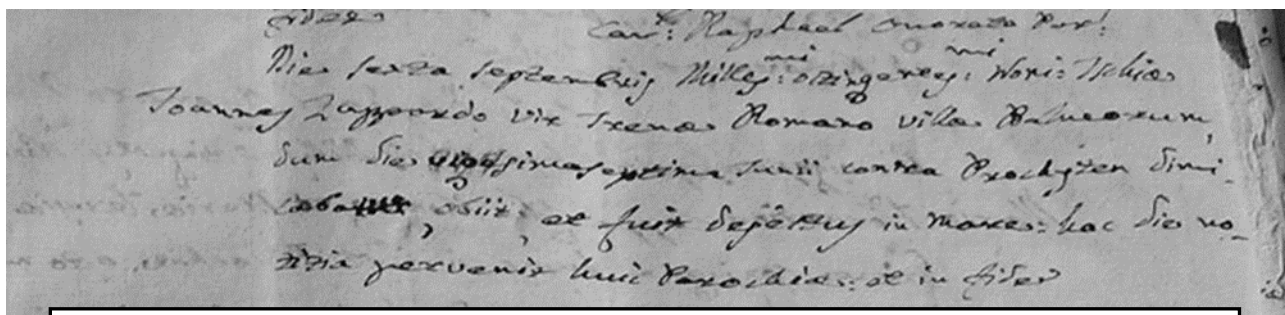 fidem
Can: Raphael Onorato Par:
Die sexta septembris Mill.mi: octingen.mi: Noni: Ischiae
Joannes Zappardo vir Irenae Romano villae Balneorum,
dum die septima Junii contra Prochyten dimi-
, obiit, et fuit dejectus in mare: hac die no-
titia pervenit huic Parochiae: et in fidem